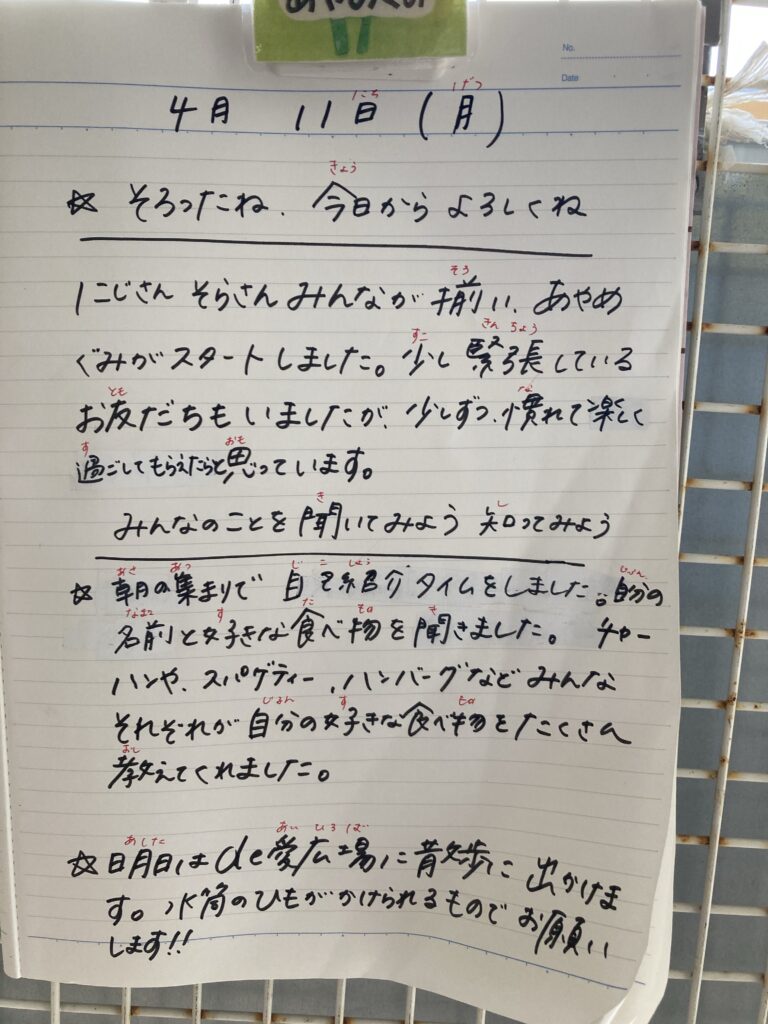 No.
Date
4月 11日(月)
☆ そろったね、今日から よろしくね
にじさん そらさん みんなが 揃い、あやめ
ぐみがスタートしました。少し 緊張している
お友だちも いましたが、少しずつ、慣れて楽しく
過ごしてもらえたらと思っています。
みんなのことを 聞いてみよう 知ってみよう
☆ 朝の集まりで 自己紹介タイムをしました。自分の
名前と好きな食べ物を聞きました。 チャー
ハンや、スパゲティー、ハンバーグなど みんな
それぞれが 自分の好きな食べ物を たくさん
教えてくれました。
☆ 明日は de愛広場に散歩に 出かけま
す。水筒のひもが かけられるもので お願い
します!!